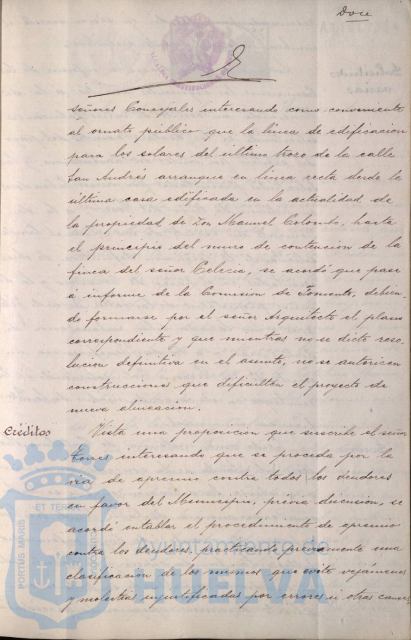 Doce
señores Concejales interesando como conveniente
al ornato público que la linea de edificacion
para los solares del último trozo de la calle
San Andrés arranque en línea recta desde la
última casa edificada en la actualidad, de
la propiedad de Don Manuel Colombo, hasta
el principio del muro de contención de la
finca del señor , se acordó que pase
á informe de la Comisión de Fomento, debien-
do formarse por el señor Arquitecto el plano
correspondiente y que mientras no se dicte reso-
lución definitiva en el asunto, no se autoricen
construcciones que dificulten el proyecto de
nueva alineación.
Créditos
Vista una proposición que suscribe el señor
interesando que se proceda por la
vía de apremio contra todos los deudores
en favor del Municipio, previa discusión, se
acordó entablar el procedimiento de apremio
contra los deudores, practicando previamente una
clasificación de los mismos que evite vejámenes
y molestias injustificadas por errores ú otras causas
PORTUS MARIS
ET TERRÆ
CUSTODIA
Ayuntamiento de
HUELVA